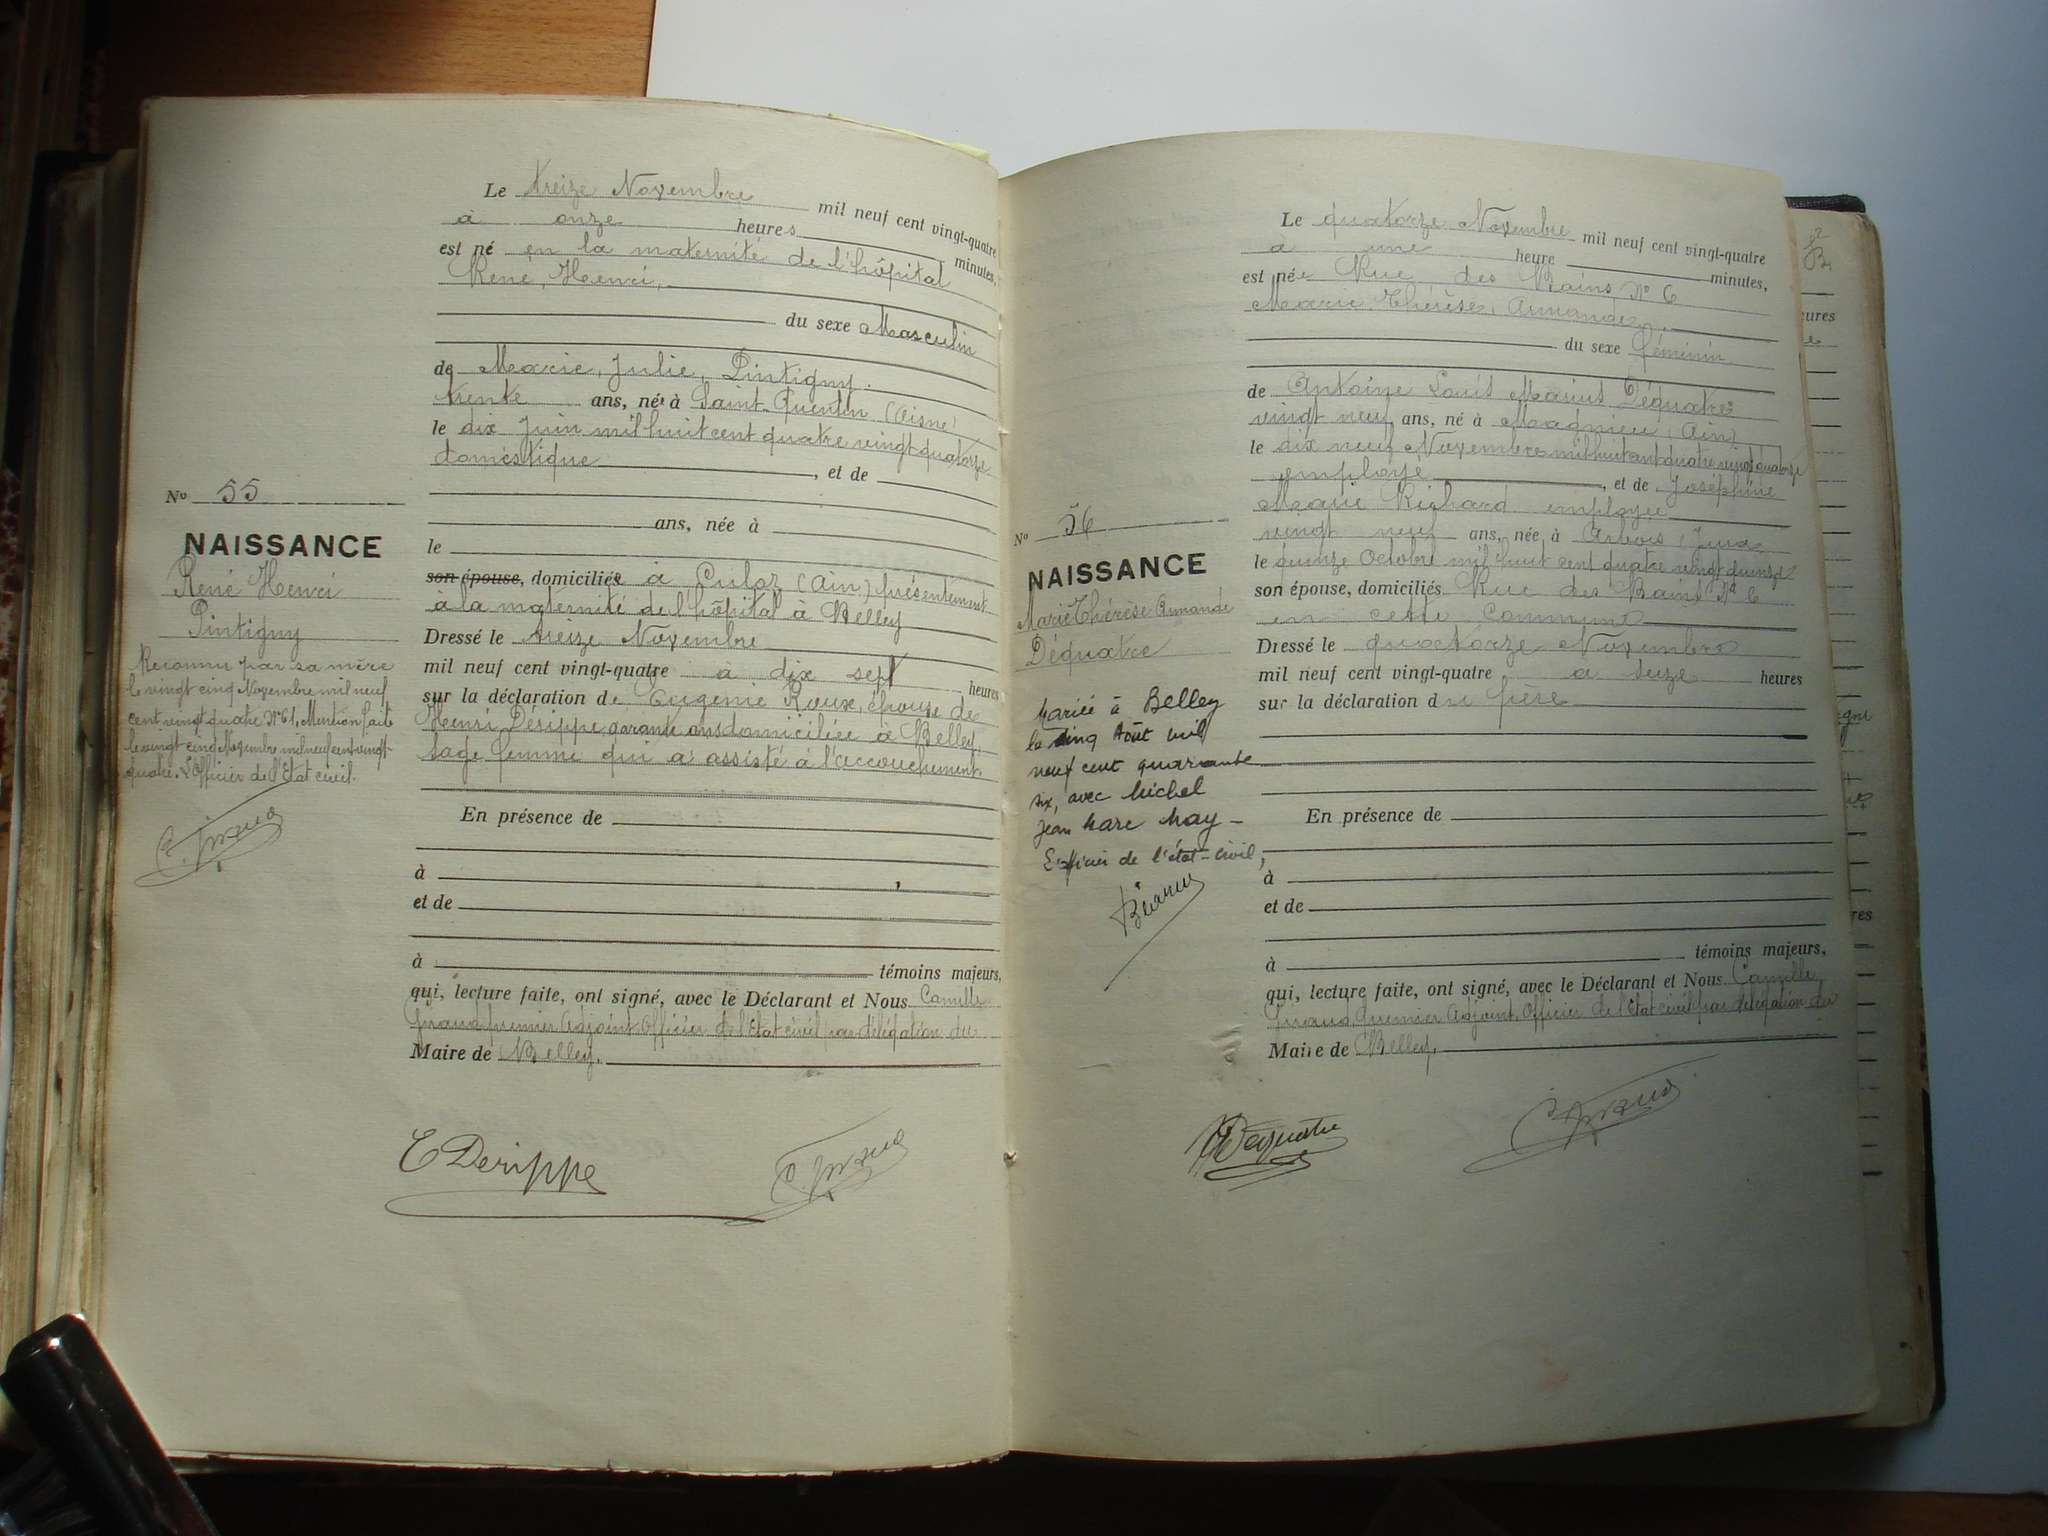 Le treize Novembre mil neuf cent vingt-quatre
à onze heures minutes,
est né en la maternité de l'hôpital
René, Henri,
du sexe Masculin
de Marie, Julie, Pintigny.
trente ans, née à Saint-Quentin (Aisne)
le dix Juin mil huit cent quatre vingt quatorze
domestique, et de
ans, née à
le
son épouse, domiciliée à Culoz (Ain) présentement
à la maternité de l'hôpital à Belley
Dressé le treize Novembre
mil neuf cent vingt-quatre à dix sept heures
sur la déclaration de Eugenie Roux, épouse de
Henri Dérippe, ans domiciliée à Belley,
sage femme qui a assisté à l'accouchement.
En présence de
à
et de
à témoins majeurs,
qui, lecture faite, ont signé, avec le Déclarant et Nous Camille
premier Adjoint, Officier de l'Etat civil par délégation du
Maire de Belley.
E Derippe
No 55
NAISSANCE
René Henri
Pintigny
Reconnu par sa mère
le vingt cinq Novembre mil neuf
cent vingt quatre N° 61. Mention faite
le vingt cinq Novembre mil neuf cent vingt
quatre. L'Officier de l'Etat civil.
Le quatorze Novembre mil neuf cent vingt-quatre
à une heure minutes,
est née Rue des Bains N° 6
Marie, Thérèse, Armande,
du sexe féminin
de Antoine Louis Marius Déquatre
vingt neuf ans, né à Magnieu (Ain)
le dix neuf Novembre mil huit cent quatre vingt quatorze
employé, et de Joséphine
Marie Richard employée
vingt neuf ans, née à Arbois (Jura
le quinze Octobre mil huit cent quatre vingt quinze
son épouse, domiciliés Rue des Bains N° 6
en cette commune
Dressé le quatorze Novembre
mil neuf cent vingt-quatre à seize heures
sur la déclaration du père
En présence de
à
et de
à témoins majeurs,
qui, lecture faite, ont signé, avec le Déclarant et Nous Camille
premier Adjoint, Officier de l'Etat civil par délégation du
Maire de Belley.
Déquatre
No 56
NAISSANCE
Marie Thérèse Armande
Déquatre
Mariée à Belley
le cinq Août mil
neuf cent quarante
six, avec Michel
Jean Marc May -
L'officier de l'état-civil,